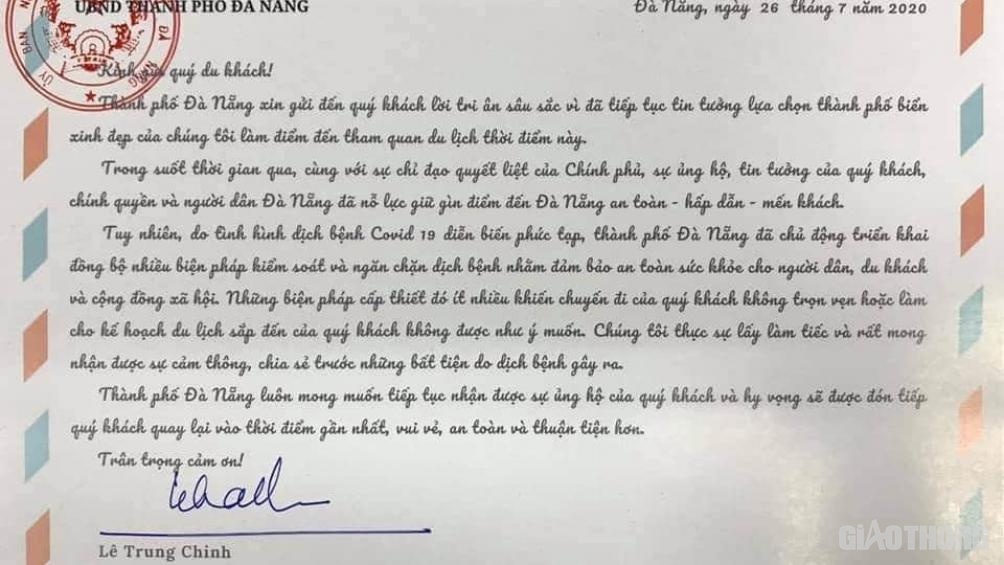 UBND THÀNH PHỐ ĐÀ NẴNG
Đà Nẵng, ngày 26 tháng 7 năm 2020
ỦY BAN N
ĐÀ NẴNG
Kính gửi quý du khách!
Thành phố Đà Nẵng xin gửi đến quý khách lời tri ân sâu sắc vì đã tiếp tục tin tưởng lựa chọn thành phố biển
xinh đẹp của chúng tôi làm điểm đến tham quan du lịch thời điểm này.
Trong suốt thời gian qua, cùng với sự chỉ đạo quyết liệt của Chính phủ, sự ủng hộ, tin tưởng của quý khách,
chính quyền và người dân Đà Nẵng đã nỗ lực giữ gìn điểm đến Đà Nẵng an toàn - hấp dẫn - mến khách.
Tuy nhiên, do tình hình dịch bệnh Covid 19 diễn biến phức tạp, thành phố Đà Nẵng đã chủ động triển khai
đồng bộ nhiều biện pháp kiểm soát và ngăn chặn dịch bệnh nhằm đảm bảo an toàn sức khỏe cho người dân, du khách
và cộng đồng xã hội. Những biện pháp cấp thiết đó ít nhiều khiến chuyến đi của quý khách không trọn vẹn hoặc làm
cho kế hoạch du lịch sắp đến của quý khách không được như ý muốn. Chúng tôi thực sự lấy làm tiếc và rất mong
nhận được sự cảm thông, chia sẻ trước những bất tiện do dịch bệnh gây ra.
Thành phố Đà Nẵng luôn mong muốn tiếp tục nhận được sự ủng hộ của quý khách và hy vọng sẽ được đón tiếp
quý khách quay lại vào thời điểm gần nhất, vui vẻ, an toàn và thuận tiện hơn.
Trân trọng cảm ơn!
Lê Trung Chinh
GIAOTHONG